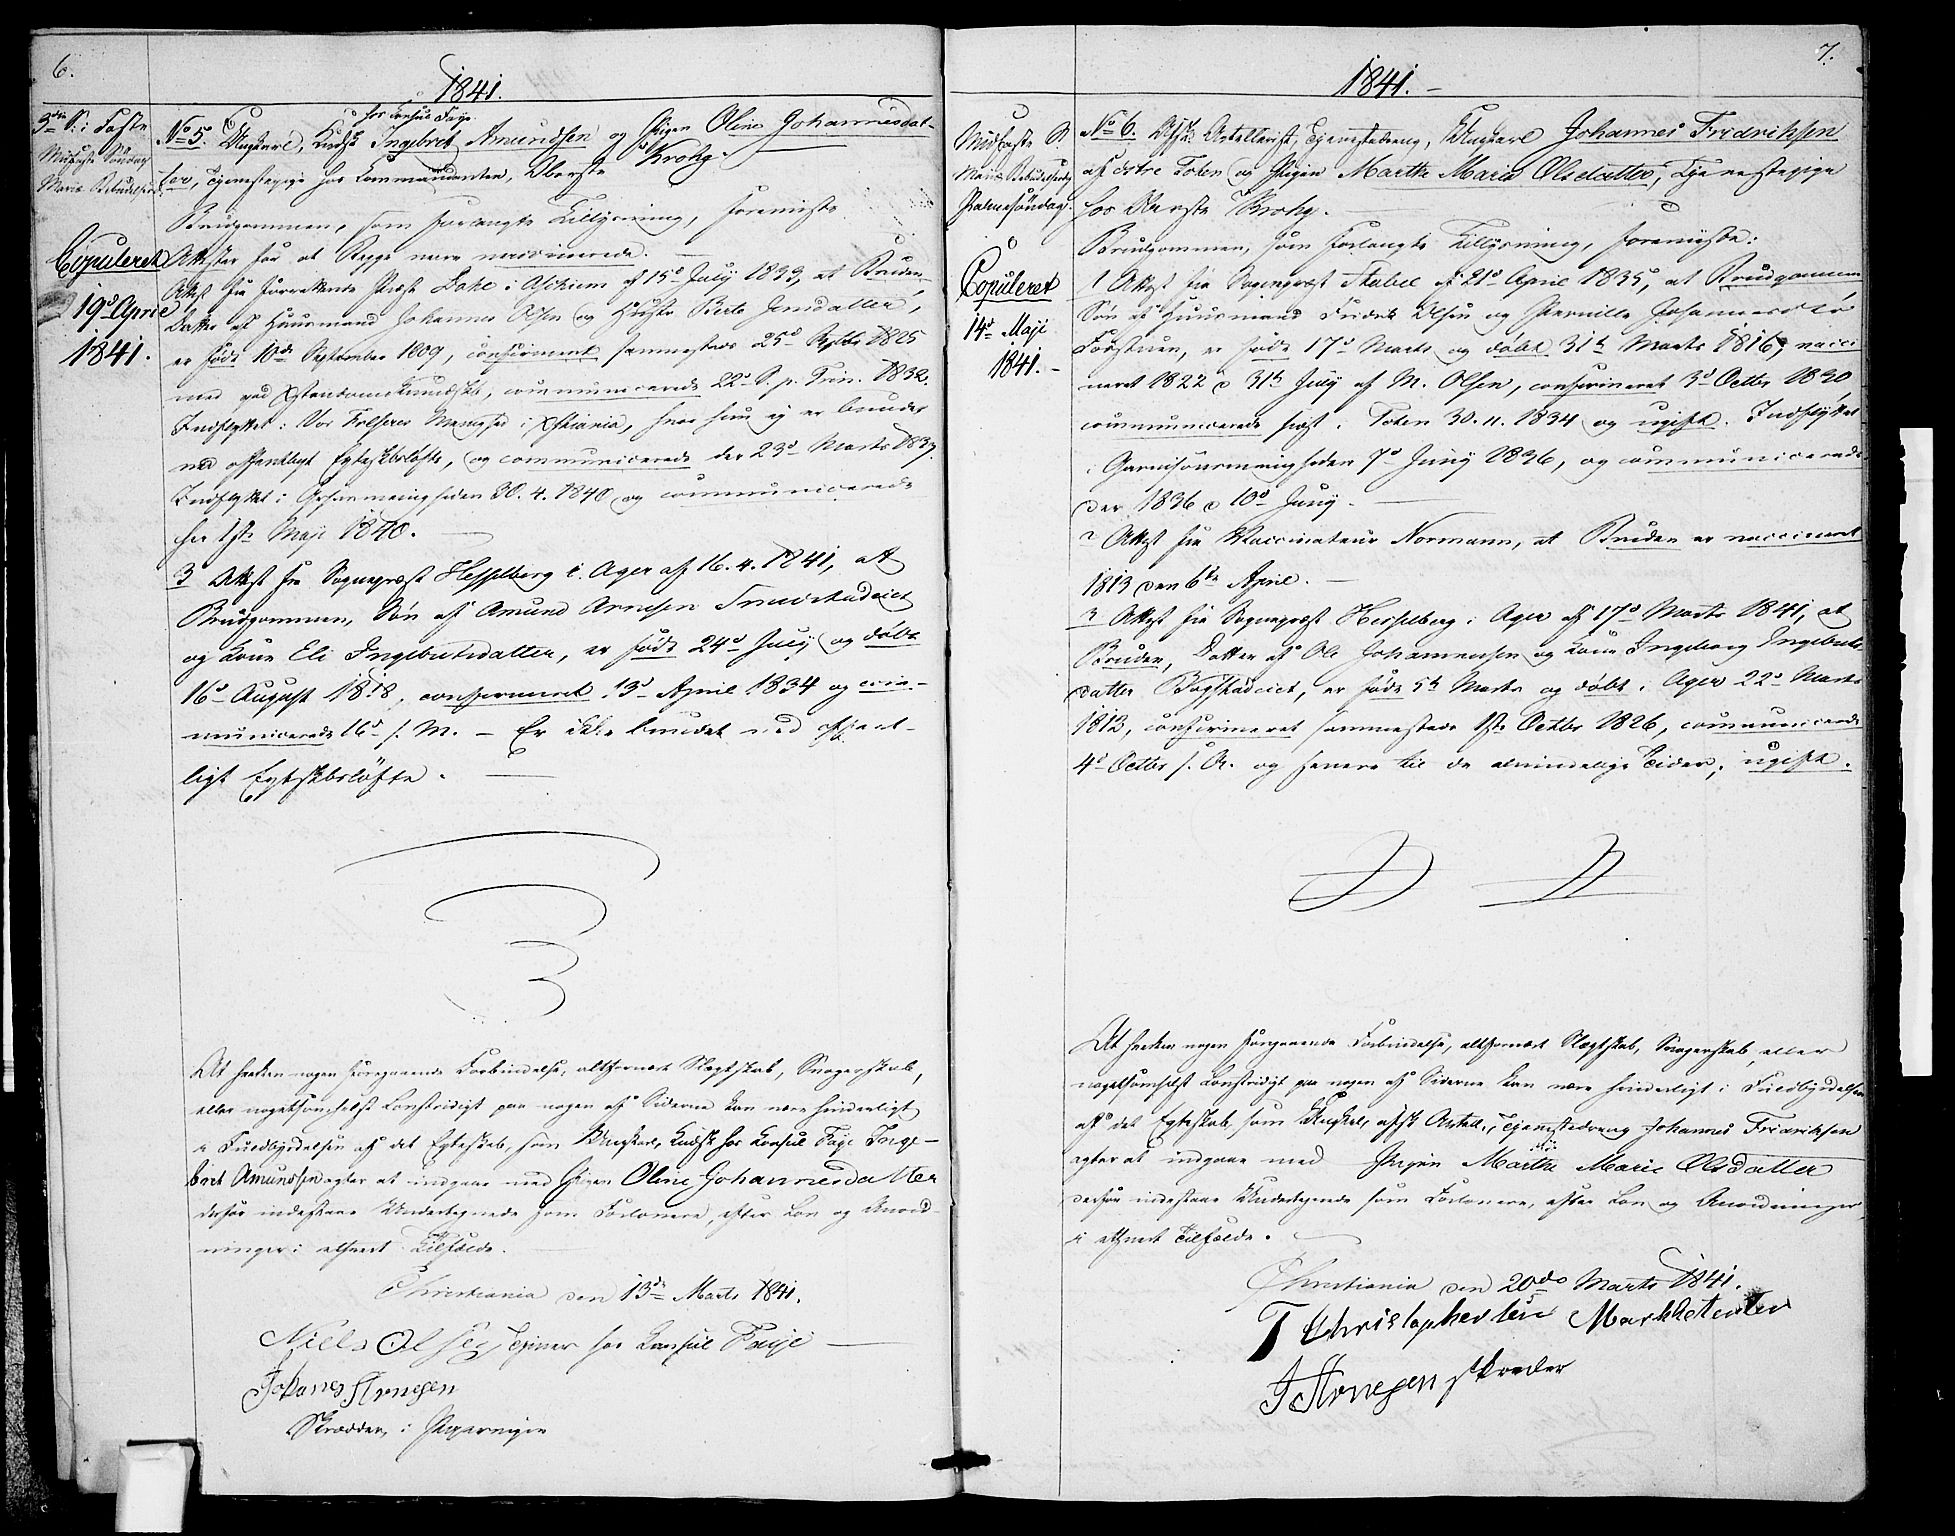 6.
1841.
3die S. i Faste
Midfaste Søndag
Mariæ Bebudelse
Copuleret
19d April
1841.
hos Consul Faye
No 5. Ungkarl, Kudsk Ingebret Amundsen og Pigen Oline Johannesdat-
ter, Tjenestepige hos Commandanten, Oberste Krohg.
Brudgommen, som forlangte Tillysning, foreviste
Attester for at Begge vare vaccinerede.
Attest fra Præst i af 15d July 1833, at Bruden,
Datter af Huusmand Johannes Olsen og Hustru Berte Jensdatter,
er født 10de September 1809, confirmeret sammesteds 25d 1825
med god Xstendomskundskab, communicerede 22d S. p. Trin. 1832.
Indflyttet i Vor Frelsers Menighed i Xstiania, hvor hun ej er bunden
ved offentligt Egteskabsløfte, og communicerede der 23d Marts 1839
Indflyttet i 30. 4. 1840 og communicerede
her 1ste Maji 1840.
3 Attest fra Sognepræst Hesselberg i Ager af 16. 4. 1841, at
Brudgommen, Søn af Amund Arnesen
og Kone Eli Ingebretsdatter, er født 24d July og døbt
16d August 1818, confirmeret 13d April 1834 og com-
municerede 16d s. M. - Er ikke bunden ved offent-
ligt Egteskabsløfte.
At hverken nogen foregaaende Forbindelse, altfornært Slægtskab, Svogerskab,
eller nogetsomhelst Lovstridigt paa nogen af Siderne kan være hinderligt
i Fuldbyrdelsen af det Egteskab, som Ungkarl, Kudsk hos Konsul Faye Inge-
bret Amundsen agter at indgaae med Pigen Oline Johannesdatter
derfor indestaae Undertegnede som Forlovere, efter Lov og Anord-
ninger i ethvert Tilfælde.
Christiania den 13de Marts 1841.
Niels Olsen tjener hos Konsul Faye
Johanes Arnesen
Skrædder, i Pipervigen
7.
1841.
Midfaste S.
Mariæ Bebudelsesdag
Palmesøndag.
Copuleret
14d Maji
1841.
No 6. Afsk. Artillerist, Tjenestedreng, Ungkarl Johannes Fridriksen
af østre Toten og Pigen Marthe Marie Olsdatter, Tjenestepige
hos Oberste Krohg.
Brudgommen, som forlangte Tillysning, foreviste:
1 Attest fra Sognepræst Stabel af 21d April 1835, at Brudgommen
Søn af Huusmand Fridrik Olsen og Pernille Johannesdtr
er født 17d Marts og døbt 31te Marts 1816, vacci
neret 1822 d 31te July af M. Olsen, confirmeret 3d Octbr 1830
communicerede sidst i Toten 30. 11. 1834 og ugift. Indflyttet
i Garnisonsmenigheden 7d Juny 1836, og communicerede
der 1836 d 10d Juny.
2 Attest fra Vaccinateur Normann, at Bruden er vaccineret
1813 den 6te April.
3 Attest fra Sognepræst Hesselberg i Ager af 17d Marts 1841, at
Bruden, Datter af Ole Johannesen og Kone Ingeborg Ingebrets-
datter Bogstadeiet, er født 5te Marts og døbt i Ager 22d Marts
1812, confirmeret sammesteds 1ste Octbr 1826, communicerede
4d Octbr s. A. og senere til de almindelige Tider, ugift.
At hverken nogen foregaaende Forbindelse, altfornært Slægtskab, Svogerskab, eller
nogetsomhelst Lovstridigt paa nogen af Siderne kan være hinderligt i Fuldbyrdelsen
af det Egteskab, som Ungkarl, afsk. Artill., Tjenestedreng Johannes Fridriksen
agter at indgaae med Pigen Marthe Marie Olsdatter
derfor indestaae Undertegnede som Forlovere, efter Lov og Anordninger,
i ethvert Tilfælde.
Christiania den 20de Marts 1841.
T Christophersen Markketenter
J Arnesen skreder